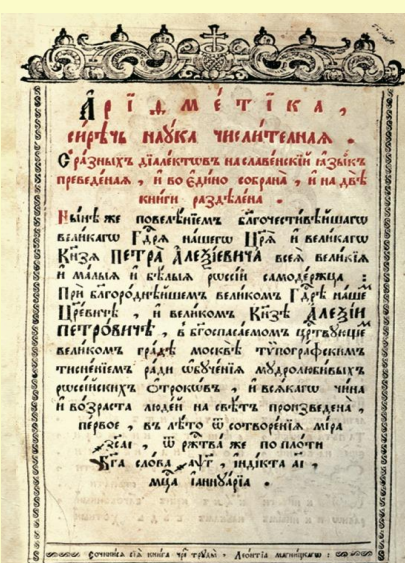 Арїѳме́тїка ,
сирѣ́чь наꙋка числи́телнаѧ .
С̾ ра́зныхъ дїале́ктѡвъ на славе́нскїй ѧ҆зы́къ
преведе́наѧ , и҆ во є҆ди́но собрана̀ , и҆ на двѣ̀
кни́ги раздѣле́на .
Ны́нѣ же повелѣ́нїемъ благочести́вѣйшагѡ
вели́кагѡ Гдⷭ҇рѧ на́шегѡ Цр҃ѧ̀ и҆ вели́кагѡ
Кн҃зѧ ПЕТРА̀ АЛЕѮІ́ЕВИЧА всеѧ̀ вели́кїѧ
и҆ ма́лыѧ и҆ бѣ́лыѧ рѡссі́и самоде́ржца :
Прѝ благоро́днѣйшемъ вели́комъ Гдⷭ҇рѣ на́шеⷨ
Цр҃е́вичѣ , и҆ вели́комъ Кн҃зѣ АЛЕѮІ́И
ПЕТРО́ВИЧѢ , в̾ бг҃оспаса́емомъ црⷭ҇твꙋющеⷨ
вели́комъ гра́дѣ москвѣ̀ тѷпогра́фскимъ
тисне́нїемъ ра́ди ѡ҆бꙋче́нїѧ мꙋдролюби́выхъ
рѡссі́йскихъ ѻ҆́трокѡвъ , и҆ всѧ́кагѡ чи́на
и҆ во́зраста люде́й на свѣ́тъ произведе́на ,
пе́рвое , въ лѣ́то ѿ сотворе́нїѧ мі́ра
҂зсаі , ѿ рж҃тва̀ же по пло́ти
Бг҃а сло́ва ҂аѱг , їндїкта аі ,
мцⷭ҇а і҆аннꙋа́рїа .
Сочини́сѧ сїѧ̀ кни́га чрез̾ трꙋды̀ , Лео́нтїа магни́цкагѡ :